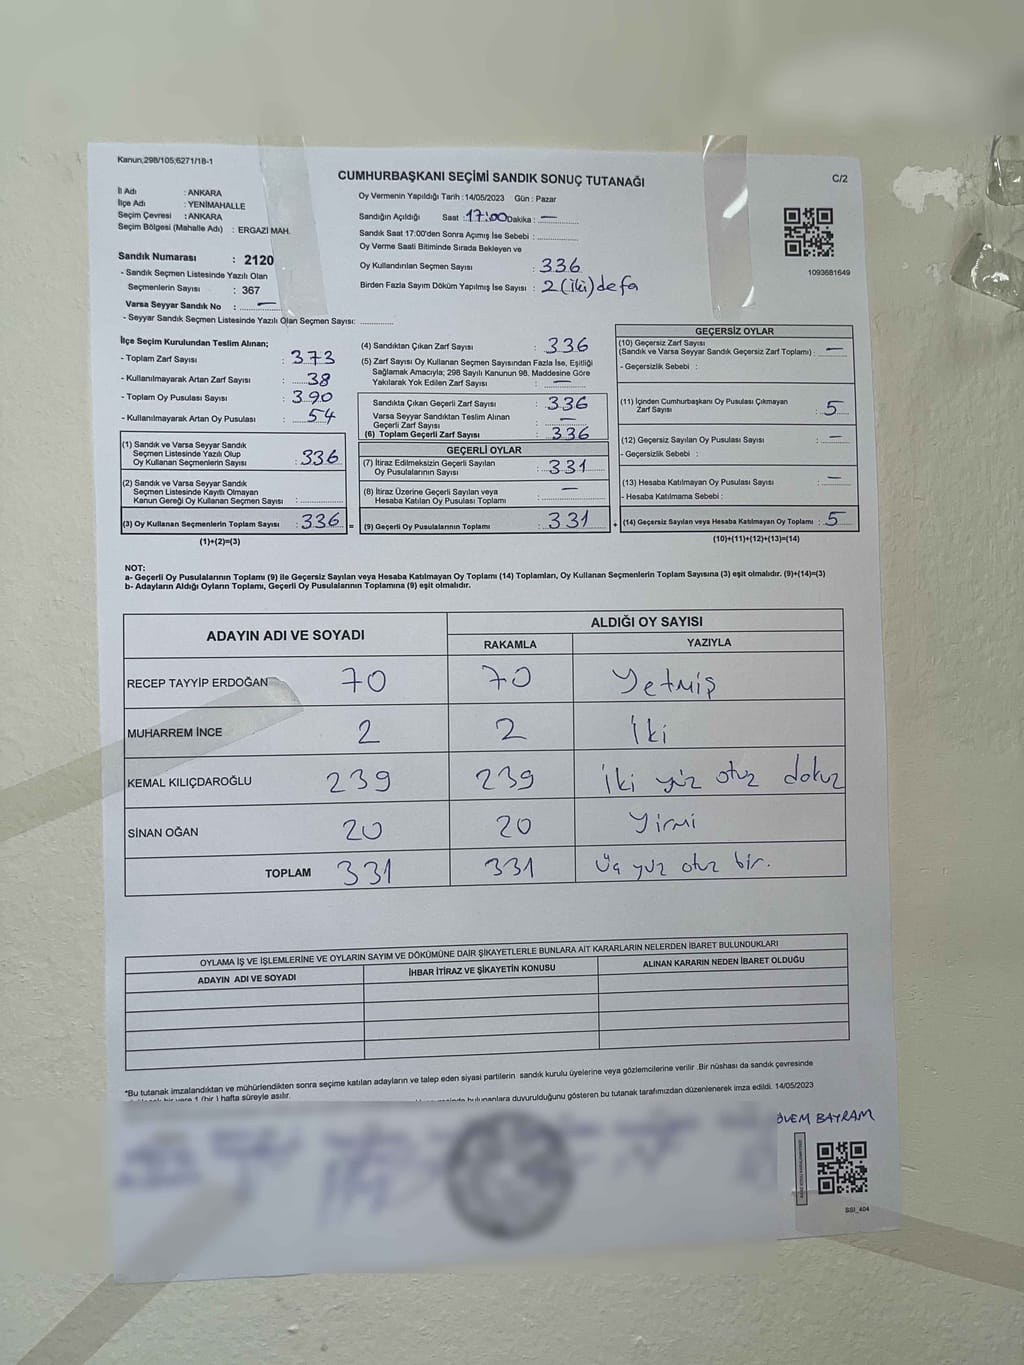 Kanun;298/105;6271/18-1
CUMHURBAŞKANI SEÇİMİ SANDIK SONUÇ TUTANAĞI
C/2
İl Adı : ANKARA
İlçe Adı : YENİMAHALLE
Seçim Çevresi : ANKARA
Seçim Bölgesi (Mahalle Adı) : ERGAZİ MAH.
Sandık Numarası : 2120
- Sandık Seçmen Listesinde Yazılı Olan
Seçmenlerin Sayısı : 367
Varsa Seyyar Sandık No : —
- Seyyar Sandık Seçmen Listesinde Yazılı Olan Seçmen Sayısı: ..............
Oy Vermenin Yapıldığı Tarih : 14/05/2023 Gün : Pazar
Sandığın Açıldığı Saat : 17:00 Dakika : —
Sandık Saat 17:00'den Sonra Açımış İse Sebebi : ..............
Oy Verme Saati Bitiminde Sırada Bekleyen ve
Oy Kullandırılan Seçmen Sayısı : 336
Birden Fazla Sayım Döküm Yapılmış İse Sayısı : 2 (iki) defa
1093681649
İlçe Seçim Kurulundan Teslim Alınan;
- Toplam Zarf Sayısı : 373
- Kullanılmayarak Artan Zarf Sayısı : 38
- Toplam Oy Pusulası Sayısı : 390
- Kullanılmayarak Artan Oy Pusulası : 54
(1) Sandık ve Varsa Seyyar Sandık
Seçmen Listesinde Yazılı Olup
Oy Kullanan Seçmenlerin Sayısı : 336
(2) Sandık ve Varsa Seyyar Sandık
Seçmen Listesinde Kayıtlı Olmayan
Kanun Gereği Oy Kullanan Seçmen Sayısı : ..............
(3) Oy Kullanan Seçmenlerin Toplam Sayısı : 336 =
(1)+(2)=(3)
(4) Sandıktan Çıkan Zarf Sayısı : 336
(5) Zarf Sayısı Oy Kullanan Seçmen Sayısından Fazla İse, Eşitliği
Sağlamak Amacıyla; 298 Sayılı Kanunun 98. Maddesine Göre
Yakılarak Yok Edilen Zarf Sayısı : —
Sandıkta Çıkan Geçerli Zarf Sayısı : 336
Varsa Seyyar Sandıktan Teslim Alınan
Geçerli Zarf Sayısı : —
(6) Toplam Geçerli Zarf Sayısı : 336
GEÇERLİ OYLAR
(7) İtiraz Edilmeksizin Geçerli Sayılan
Oy Pusulalarının Sayısı : 331
(8) İtiraz Üzerine Geçerli Sayılan veya
Hesaba Katılan Oy Pusulası Toplamı : —
(9) Geçerli Oy Pusulalarının Toplamı : 331 +
GEÇERSİZ OYLAR
(10) Geçersiz Zarf Sayısı
(Sandık ve Varsa Seyyar Sandık Geçersiz Zarf Toplamı) : —
- Geçersizlik Sebebi :
(11) İçinden Cumhurbaşkanı Oy Pusulası Çıkmayan
Zarf Sayısı : 5
(12) Geçersiz Sayılan Oy Pusulası Sayısı : —
- Geçersizlik Sebebi :
(13) Hesaba Katılmayan Oy Pusulası Sayısı : —
- Hesaba Katılmama Sebebi :
(14) Geçersiz Sayılan veya Hesaba Katılmayan Oy Toplamı : 5
(10)+(11)+(12)+(13)=(14)
NOT:
a- Geçerli Oy Pusulalarının Toplamı (9) ile Geçersiz Sayılan veya Hesaba Katılmayan Oy Toplamı (14) Toplamları, Oy Kullanan Seçmenlerin Toplam Sayısına (3) eşit olmalıdır. (9)+(14)=(3)
b- Adayların Aldığı Oyların Toplamı, Geçerli Oy Pusulalarının Toplamına (9) eşit olmalıdır.
ADAYIN ADI VE SOYADI
ALDIĞI OY SAYISI
RAKAMLA YAZIYLA
RECEP TAYYİP ERDOĞAN 70 70 Yetmiş
MUHARREM İNCE 2 2 İki
KEMAL KILIÇDAROĞLU 239 239 iki yüz otuz dokuz
SİNAN OĞAN 20 20 Yirmi
TOPLAM 331 331 Üç yuz otuz bir.
OYLAMA İŞ VE İŞLEMLERİNE VE OYLARIN SAYIM VE DÖKÜMÜNE DAİR ŞİKAYETLERLE BUNLARA AİT KARARLARIN NELERDEN İBARET BULUNDUKLARI
ADAYIN ADI VE SOYADI İHBAR İTİRAZ VE ŞİKAYETİN KONUSU ALINAN KARARIN NEDEN İBARET OLDUĞU
*Bu tutanak imzalandıktan ve mühürlendikten sonra seçime katılan adayların ve talep eden siyasi partilerin sandık kurulu üyelerine veya gözlemcilerine verilir .Bir nüshası da sandık çevresinde
bir yere 1 (bir ) hafta süreyle asılır.
bulunanlara duyurulduğunu gösteren bu tutanak tarafımızdan düzenlenerek imza edildi. 14/05/2023
BAYRAM
SSI_404